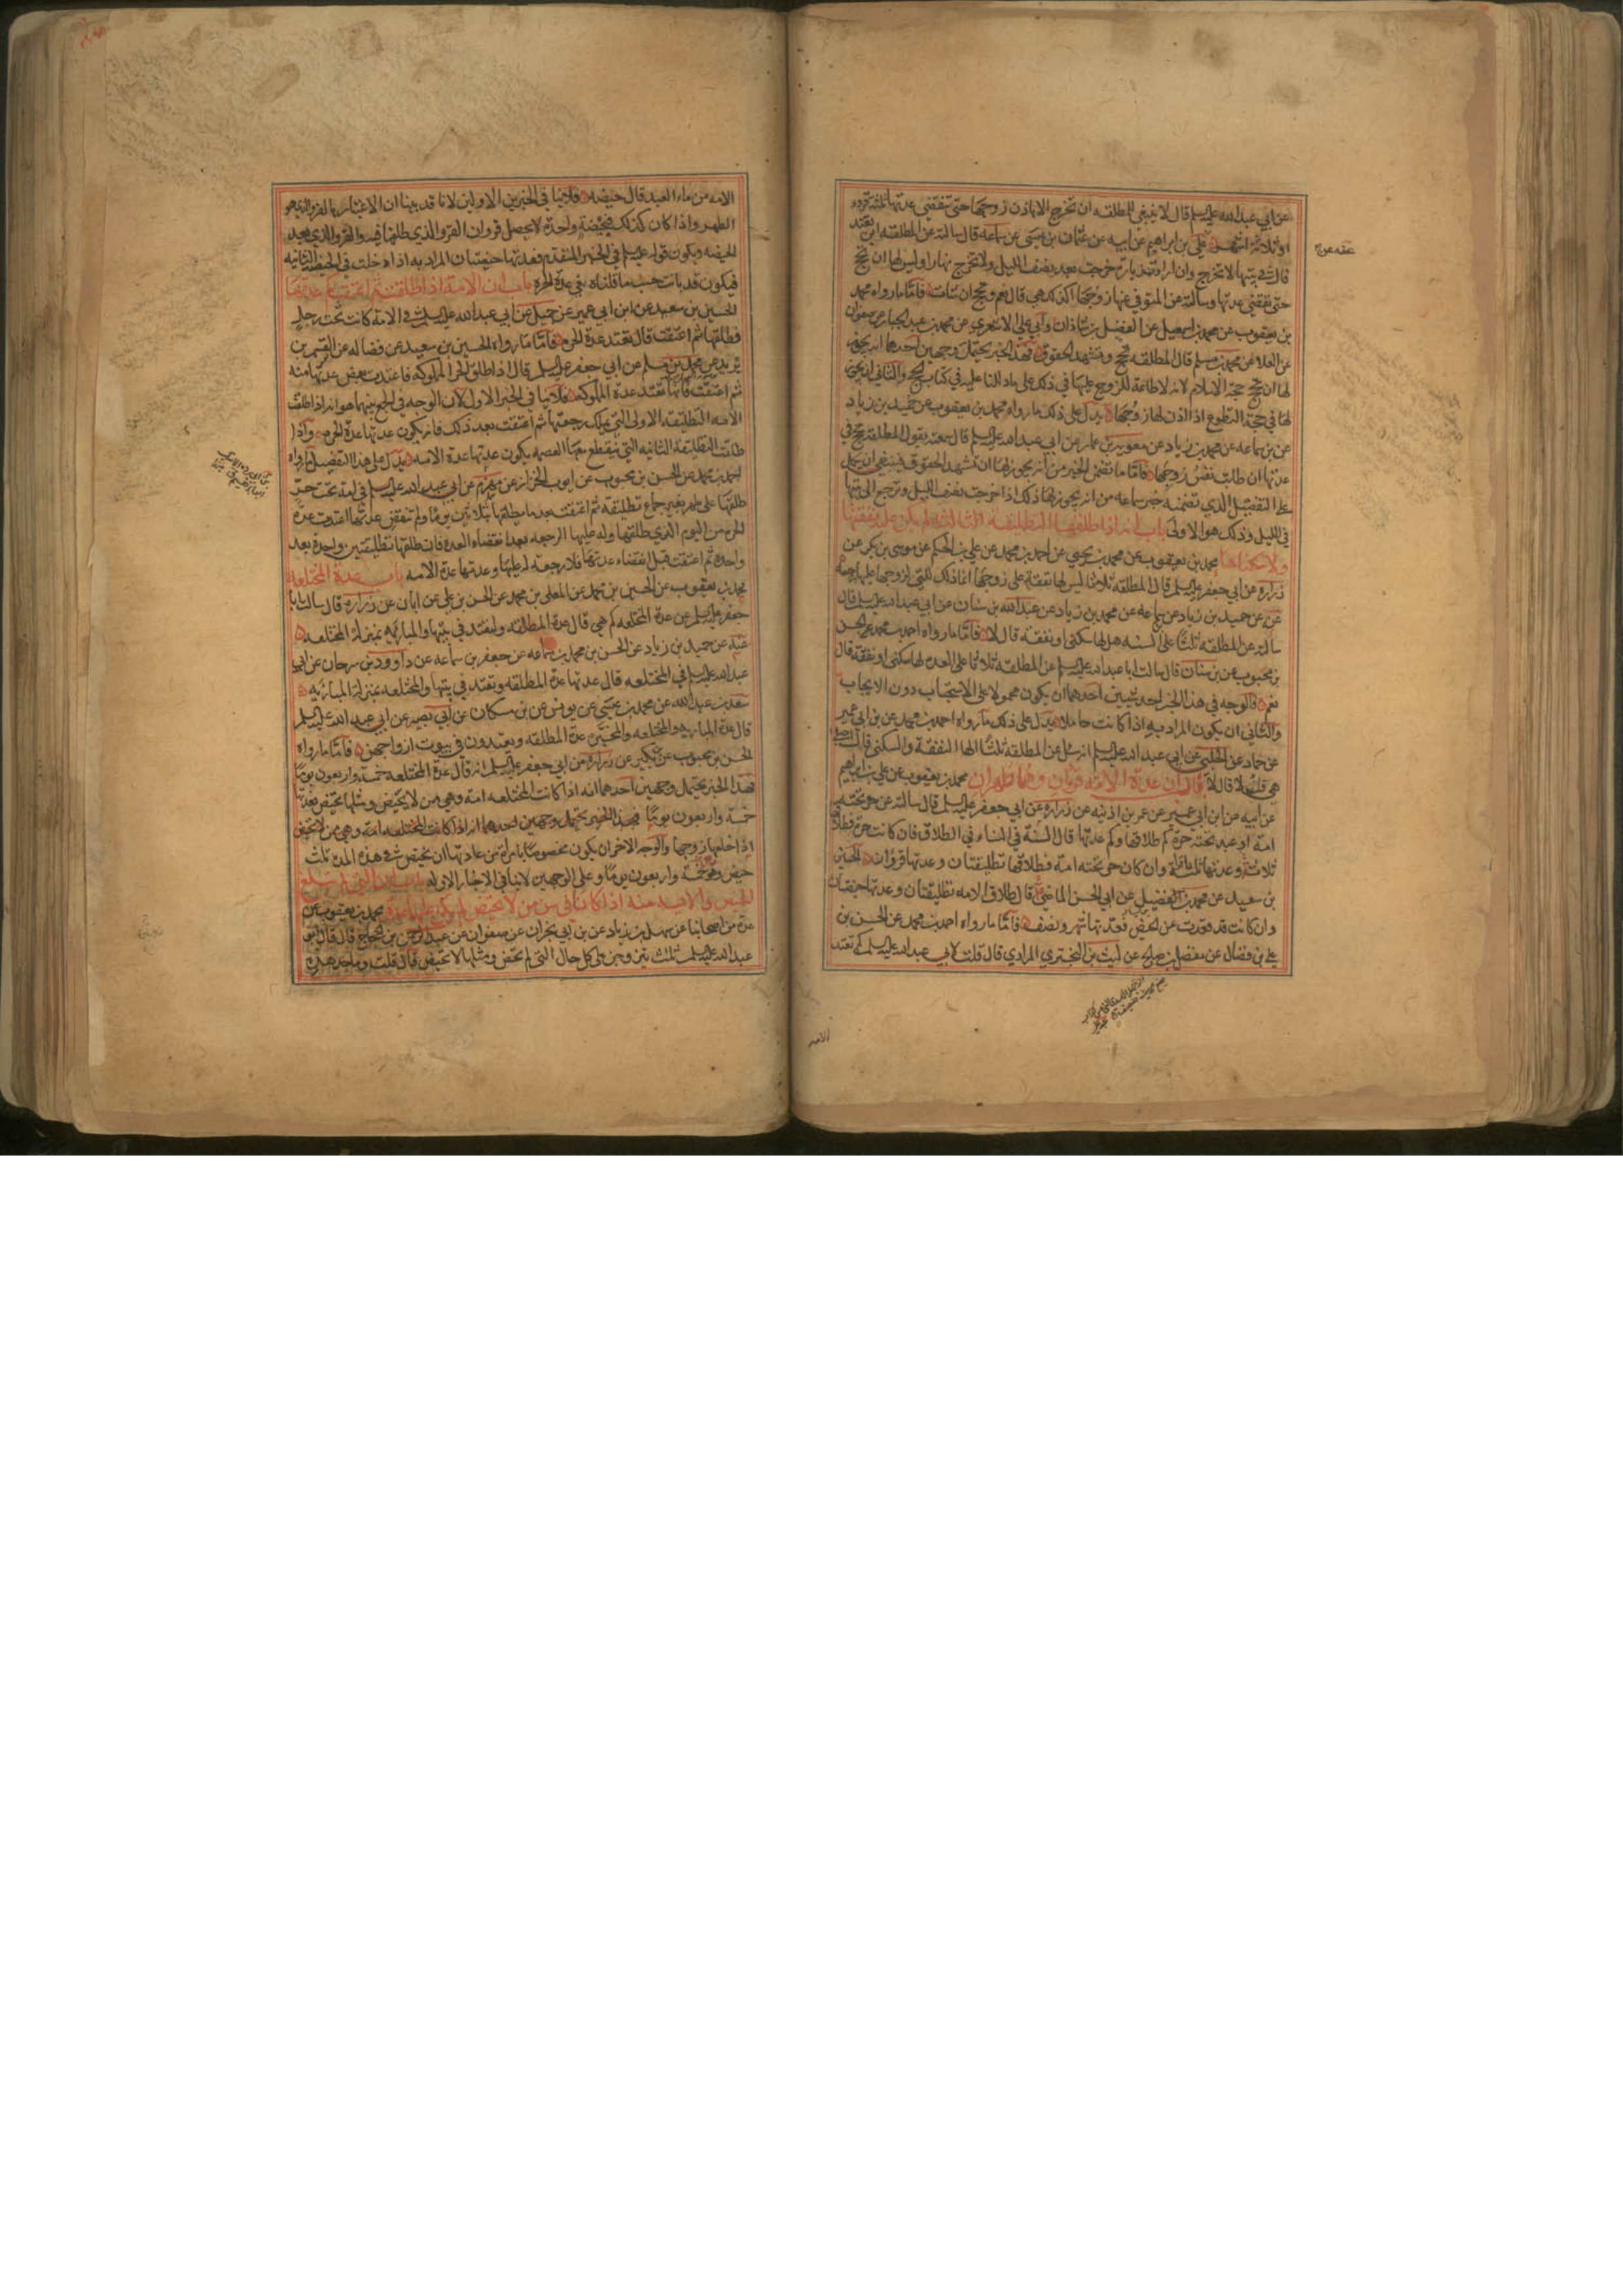 عن ابي عبد الله عليه السلم قال لا ينبغي للمطلقه ان تخرج الا باذن زوجها حتى تنقضي عدتها ثلثة قروء
او ثلاثة اشهر علي بن ابراهيم عن ابيه عن عثمان بن عيسى عن سماعه قال سالته عن المطلقه اين تعتد
قال في بيتها لا تخرج وان ارادت زيارة خرجت بعد نصف الليل ولا تخرج نهارا وليس لها ان تحج
حتى تنقضي عدتها وسالته عن المتوفى عنها زوجها اكذلك هي قال نعم وتحج ان شات فاما ما رواه محمد
بن يعقوب عن محمد بن اسمعيل عن الفضل بن شاذان وابي علي الاشعري عن محمد بن عبد الجبار عن صفوان
عن العلا عن محمد بن مسلم قال المطلقه تحج وتشهد الحقوق فهذا الخبر يحتمل وجهين احدهما انه يجوز
لها ان تحج حجة الاسلام لانه لا طاعة للزوج عليها في ذلك على ما دللنا عليه في كتاب الحج والثاني انه يجوز
لها في حجة التطوع اذا اذن لها زوجها يدل على ذلك ما رواه محمد بن يعقوب عن حميد بن زياد
عن بن سماعه عن محمد بن زياد عن معويه بن عمار عن ابي عبد الله عليه السلم قال سمعته يقول المطلقة تحج في
عدتها ان طابت نفس زوجها فاما ما تضمن الخبر من انه يجوز لها ان تشهد الحقوق فينبغي ان يحمل
على التفصيل الذي تضمنه خبر سماعه من انه يجوز لها ذلك اذا خرجت بنصف الليل وترجع الى بيتها
في الليل وذلك هو الاولى باب انه اذا طلقها التطليقه الثالثه لم يكن عليه نفقتها
ولا سكناها محمد بن يعقوب عن محمد بن يحيى عن احمد بن محمد عن علي بن الحكم عن موسى بن بكر عن
زراره عن ابي جعفر عليه السلم قال المطلقه ثلاثا ليس لها نفقة على زوجها انما ذلك للتي لزوجها عليها رجعة
عنه عن حميد بن زياد عن بن سماعه عن محمد بن زياد عن عبد الله بن سنان عن ابي عبد الله عليه السلم قال
سالته عن المطلقه ثلثا على السنه هل لها سكنى او نفقة قال لا فاما ما رواه احمد بن محمد عن الحسن
بن محبوب عن بن سنان قال سالت ابا عبد الله عليه السلم عن المطلقه ثلاثا على العده لها سكنى او نفقة قال
نعم فالوجه في هذا الخبر احد شيئين احدهما ان يكون محمولا على الاستحباب دون الايجاب
والثاني ان يكون المراد به اذا كانت حاملا يدل على ذلك ما رواه احمد بن محمد عن بن ابي عمير
عن حماد عن الحلبي عن ابي عبد الله عليه السلم انه سئل عن المطلقه ثلثا الها النفقة والسكنى قال احبلى
هي قلت لا قال لا باب ان عدة الامه قروان وهما طهران محمد بن يعقوب عن علي بن ابراهيم
عن ابيه عن ابن ابي عمير عن عمر بن اذينه عن زراره عن ابي جعفر عليه السلم قال سالته عن حر تحته
امة او عبد تحته حرة كم طلاقها وكم عدتها قال السنة في النساء في الطلاق فان كانت حرة فطلاقها
ثلاثة وعدتها ثلثة اقراء وان كان حر تحته امة فطلاقها تطليقتان وعدتها قرؤان الحسين
بن سعيد عن محمد بن الفضيل عن ابي الحسن الماضي قال طلاق الامه تطليقتان وعدتها حيضتان
وان كانت قد قعدت عن الحيض فعدتها شهر ونصف فاما ما رواه احمد بن محمد عن الحسن بن
علي بن فضال عن مفضل بن صالح عن ليث بن البختري المرادي قال قلت لابي عبد الله عليه السلم كم تعتد
الامه
الامه من ماء العبد قال حيضه فلا ينافي الخبرين الاولين لانا قد بينا ان الاعتبار بالقرو الذي هو
الطهر واذا كان كذلك فبحيضة واحدة لا يحصل قروان القرو الذي طلقها فيه والقرو الذي بعد
الحيضه ويكون قوله عليه السلم في الخبر المتقدم فعدتها حيضتان المراد به اذا دخلت في الحيضة الثانيه
فيكون قد بانت حسب ما قلناه في عدة الحرة باب ان الامة اذا طلقت ثم اعتقت كم عدتها
الحسين بن سعيد عن ابن ابي عمير عن جميل عن ابي عبد الله عليه السلم في الامة كانت تحت رجل
فطلقها ثم اعتقت قال تعتد عدة الحره فاما ما رواه الحسين بن سعيد عن فضاله عن القسم بن
بريد عن محمد بن مسلم عن ابي جعفر عليه السلم قال اذا طلق الحر المملوكه فاعتدت بعض عدتها منه
ثم اعتقت فانها تعتد عدة المملوكه فلا ينافي الخبر الاول لان الوجه في الجمع بينهما هو انه اذا طلقت
الامه التطليقه الاولى التي يملك رجعتها ثم اعتقت بعد ذلك فانه يكون عدتها عدة الحره واذا
طلقت التطليقة الثانيه التي تنقطع معها العصمه يكون عدتها عدة الامه يدل على هذا التفصيل ما رواه
احمد بن محمد عن الحسن بن محبوب عن ايوب الخزاز عن مهزم عن ابي عبد الله عليه السلم في امة تحت حر
طلقها على طهر بغير جماع تطليقة ثم اعتقت بعد ما طلقها بثلاثين يوما ولم تنقض عدتها اعتدت عدة
الحره من اليوم الذي طلقها وله عليها الرجعه بعد انقضاء العده فان طلقها تطليقتين واحدة بعد
واحدة ثم اعتقت قبل انقضاء عدتها فلا رجعة له عليها وعدتها عدة الامه باب عدة المختلعة
محمد بن يعقوب عن الحسين بن محمد عن المعلى بن محمد عن الحسن بن علي عن ابان عن زراره قال سالت ابا
جعفر عليه السلم عن عدة المختلعه كم هي قال عدة المطلقه ولتعتد في بيتها والمباريه بمنزلة المختلعه
عنه عن حميد بن زياد عن الحسن بن محمد بن سماعه عن جعفر بن سماعه عن داوود بن سرحان عن ابي
عبد الله عليه السلم في المختلعه قال عدتها عدة المطلقه وتعتد في بيتها والمختلعه بمنزلة المباريه
سعد بن عبد الله عن محمد بن عيسى عن يونس عن بن مسكان عن ابي بصير عن ابي عبد الله عليه السلم
قال عدة المباريه والمختلعه والمخيره عدة المطلقه ويعتددن في بيوت ازواجهن فاما ما رواه
الحسن بن محبوب عن بن بكير عن زرارة عن ابي جعفر عليه السلم انه قال عدة المختلعه خمسة واربعون يوما
فهذا الخبر يحتمل وجهين احدهما انه اذا كانت المختلعه امة وهي من لا تحيض ومثلها تحيض فعدتها
خمسة واربعون يوما فهذا الخبر يحتمل وجهين احدهما انه اذا كانت المختلعه امة وهي من لا تحيض
اذا خلعها زوجها والوجه الاخر ان يكون مخصوصا بامراة من عادتها ان تحيض في هذه المدة ثلث
حيض وهو خمسة واربعون يوما وعلى الوجهين لا ينافي الاخبار الاوله باب ان التي لم تبلغ
المحيض والايسه منه اذا كانتا في سن من لا تحيض لم يكن عليهما عدة محمد بن يعقوب عن
عدة من اصحابنا عن سهل بن زياد عن بن ابي نجران عن صفوان عن عبد الرحمن بن الحجاج قال قال ابو
عبد الله عليه السلم ثلث يتزوجن على كل حال التي لم تحض ومثلها لا تحيض قال قلت وما حدها